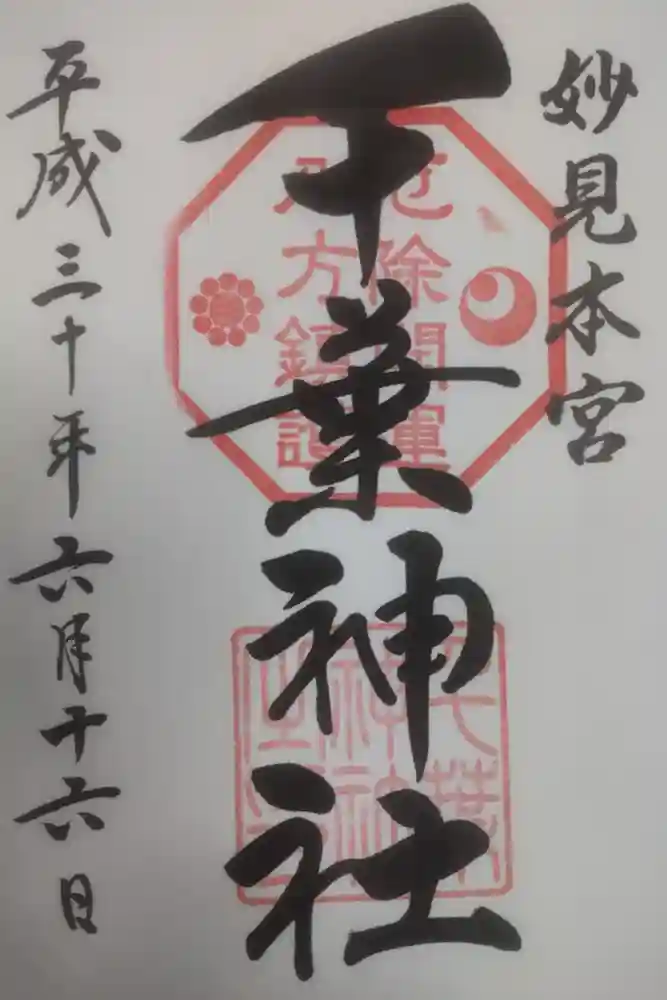 妙見本宮
千葉神社
厄除開運
八方鎮護
千葉
神社
平成三十年六月十六日